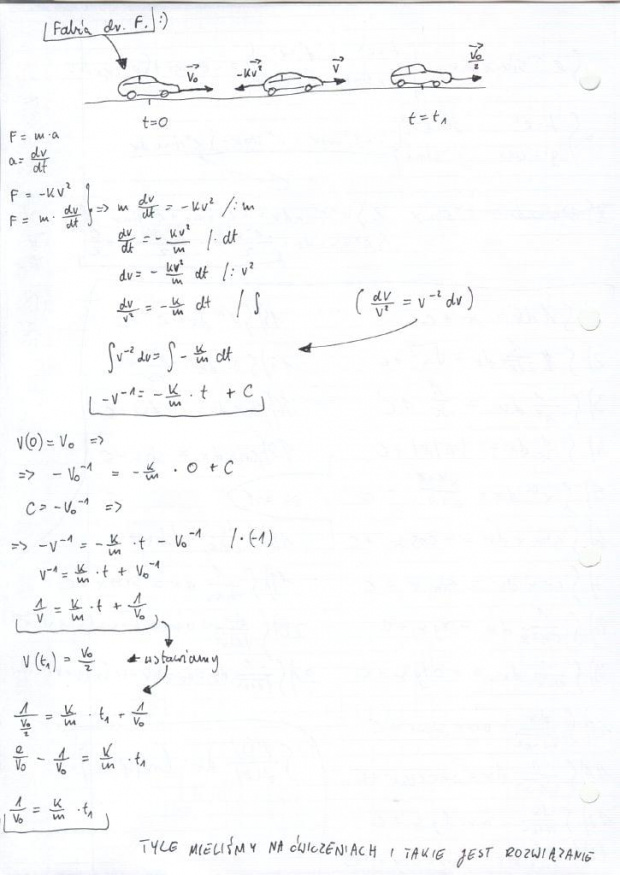 Fabia dv. F. :)
V₀ -kv² V V₀/2
t=0 t=t₁
F = m·a
a = dv/dt
F = -kv²
F = m · dv/dt } => m dv/dt = -kv² /:m
dv/dt = - kv²/m /· dt
dv = - kv²/m dt /: v²
dv/v² = - k/m dt / ∫ ( dv/v² = v⁻² dv )
∫v⁻² dv = ∫ - k/m dt
-v⁻¹ = - k/m · t + C
V(0) = V₀ =>
=> - V₀⁻¹ = - k/m · 0 + C
C = -V₀⁻¹ =>
=> -v⁻¹ = - k/m · t - V₀⁻¹ /·(-1)
v⁻¹ = k/m · t + V₀⁻¹
1/v = k/m · t + 1/V₀
V(t₁) = V₀/2 ← wstawiamy
1/(V₀/2) = k/m · t₁ + 1/V₀
2/V₀ - 1/V₀ = k/m · t₁
1/V₀ = k/m · t₁
TYLE MIELIŚMY NA ĆWICZENIACH I TAKIE JEST ROZWIĄZANIE